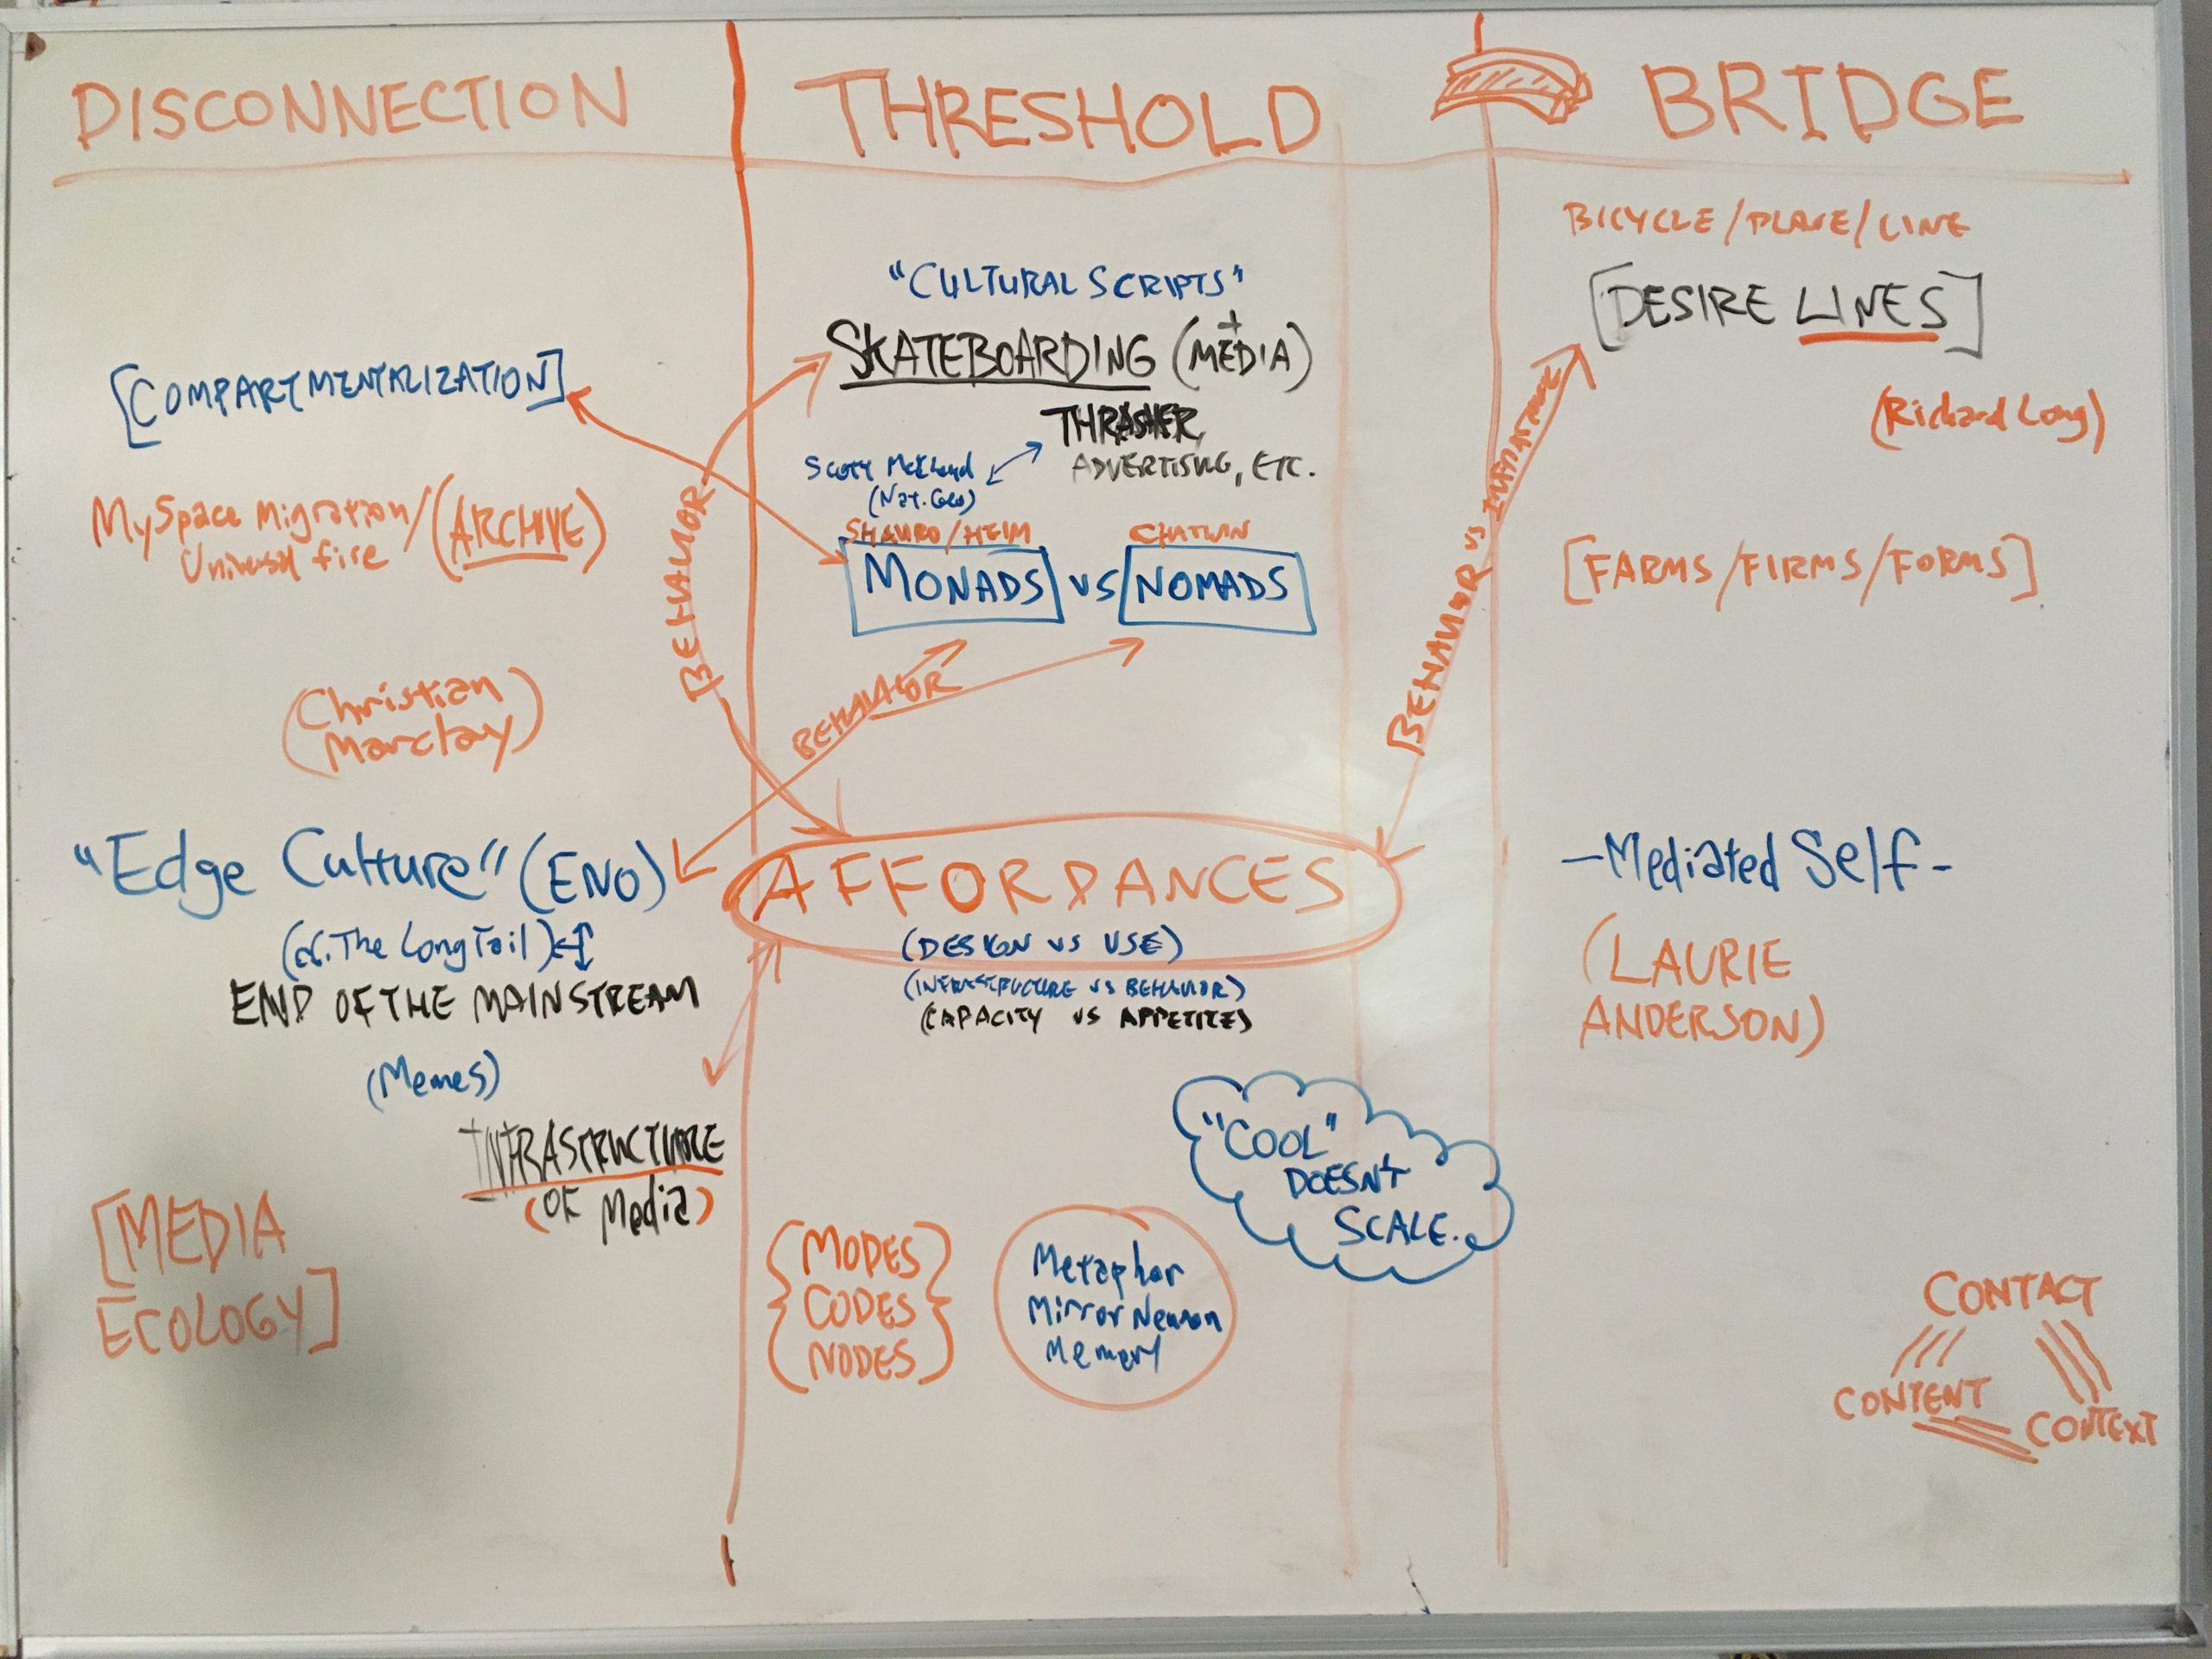 DISCONNECTION
THRESHOLD
BRIDGE
[COMPARTMENTALIZATION]
MySpace Migration/(ARCHIVE)
Universal fire
(Christian
Marclay)
"Edge Culture" (ENO)
(cf. The Long Tail)
END OF THE MAINSTREAM
(Memes)
INFRASTRUCTURE
(OF Media)
[MEDIA
ECOLOGY]
BEHAVIOR
"CULTURAL SCRIPTS"
SKATEBOARDING (MEDIA)
+
THRASHER,
ADVERTISING, ETC.
(Nat. Geo)
/HEIM
CHATWIN
MONADS VS NOMADS
BEHAVIOR
AFFORDANCES
(DESIGN VS USE)
(INFRASTRUCTURE VS BEHAVIOR)
(CAPACITY VS APPETITE)
"COOL"
DOESN'T
SCALE.
{MODES}
{CODES}
{NODES}
Metaphor
Mirror Neuron
Memory
BEHAVIOR VS
BICYCLE/PLACE/LINE
[DESIRE LINES]
(Richard Long)
[FARMS/FIRMS/FORMS]
-Mediated Self-
(LAURIE
ANDERSON)
CONTACT
CONTENT
CONTEXT